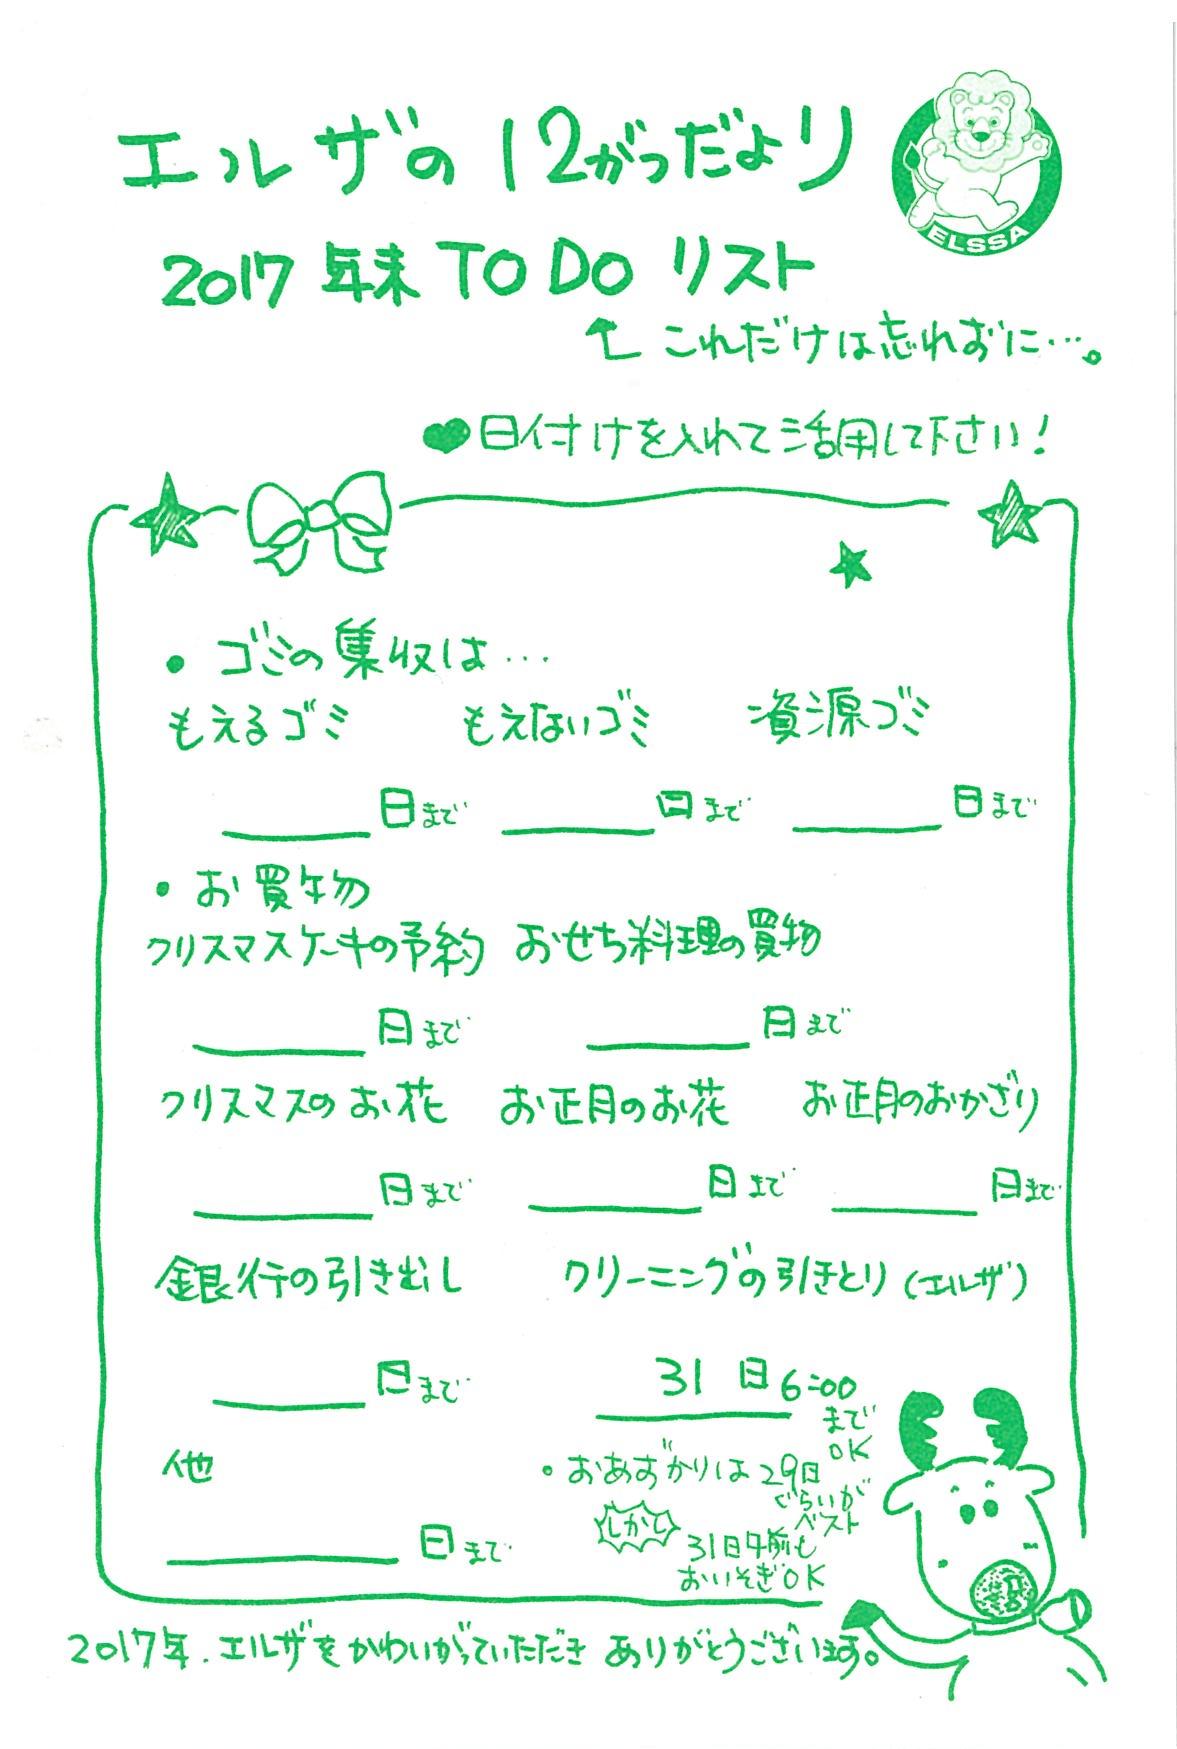 エルザの12がつだより
ELSSA
2017年末 TO DO リスト
これだけは忘れずに…。
日付けを入れて活用して下さい!
・ゴミの集収は…
もえるゴミ もえないゴミ 資源ゴミ
日まで 日まで 日まで
・お買物
クリスマスケーキの予約 おせち料理の買物
日まで 日まで
クリスマスのお花 お正月のお花 お正月のおかざり
日まで 日まで 日まで
銀行の引き出し クリーニングの引きとり(エルザ)
日まで 31日6:00
まで
OK
他
・おあずかりは29日
ぐらいが
ベスト
しかし
31日午前も
おいそぎOK
日まで
2017年.エルザをかわいがっていただき ありがとうございます。